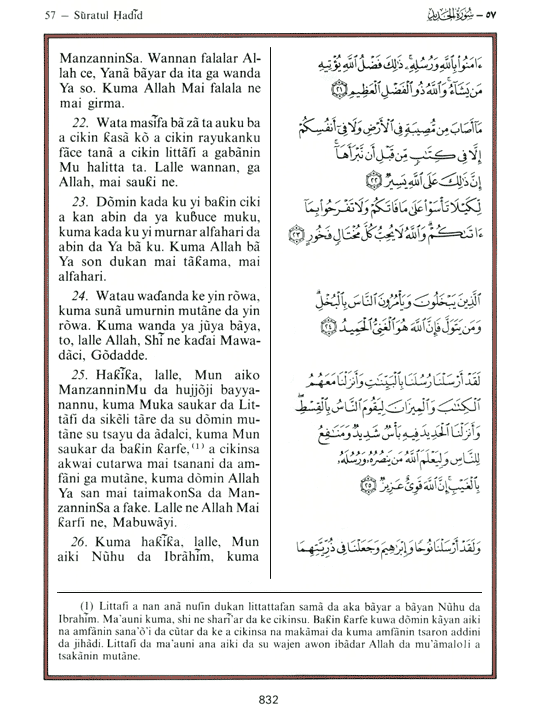 57 — Sūratul Ḥadīd
٥٧ - سُورَةُ الْحَدِيدِ
ManzanninSa. Wannan falalar Al-
lah ce, Yanā bāyar da ita ga wanda
Ya so. Kuma Allah Mai falala ne
mai girma.
22. Wata masīfa bā zā ta auku ba
a cikin ƙasā kō a cikin rayukanku
fāce tanā a cikin littāfi a gabānin
Mu halitta ta. Lalle wannan, ga
Allah, mai sauƙi ne.
23. Dōmin kada ku yi baƙin ciki
a kan abin da ya kuɓuce muku,
kuma kada ku yi murnar alfahari da
abin da Ya bā ku. Kuma Allah bā
Ya son dukan mai tāƙama, mai
alfahari.
24. Watau waɗanda ke yin rōwa,
kuma sunā umurnin mutāne da yin
rōwa. Kuma wanda ya jūya bāya,
to, lalle Allah, Shī ne kaɗai Mawa-
dāci, Gōdadde.
25. Haƙīƙa, lalle, Mun aiko
ManzanninMu da hujjōji bayya-
nannu, kuma Muka saukar da Lit-
tāfi da sikēli tāre da su dōmin mu-
tāne su tsayu da ādalci, kuma Mun
saukar da baƙin ƙarfe,(1) a cikinsa
akwai cutarwa mai tsanani da am-
fāni ga mutāne, kuma dōmin Allah
Ya san mai taimakonSa da Man-
zanninSa a fake. Lalle ne Allah Mai
ƙarfi ne, Mabuwāyi.
26. Kuma haƙīƙa, lalle, Mun
aiki Nūhu da Ibrāhīm, kuma
ءَامَنُوا۟ بِٱللَّهِ وَرُسُلِهِۦ ۚ ذَٰلِكَ فَضْلُ ٱللَّهِ يُؤْتِيهِ
مَن يَشَآءُ ۚ وَٱللَّهُ ذُو ٱلْفَضْلِ ٱلْعَظِيمِ ﴿٢١﴾
مَآ أَصَابَ مِن مُّصِيبَةٍ فِى ٱلْأَرْضِ وَلَا فِىٓ أَنفُسِكُمْ
إِلَّا فِى كِتَٰبٍ مِّن قَبْلِ أَن نَّبْرَأَهَآ ۚ
إِنَّ ذَٰلِكَ عَلَى ٱللَّهِ يَسِيرٌ ﴿٢٢﴾
لِّكَيْلَا تَأْسَوْا۟ عَلَىٰ مَا فَاتَكُمْ وَلَا تَفْرَحُوا۟ بِمَآ
ءَاتَىٰكُمْ ۗ وَٱللَّهُ لَا يُحِبُّ كُلَّ مُخْتَالٍ فَخُورٍ ﴿٢٣﴾
ٱلَّذِينَ يَبْخَلُونَ وَيَأْمُرُونَ ٱلنَّاسَ بِٱلْبُخْلِ ۗ
وَمَن يَتَوَلَّ فَإِنَّ ٱللَّهَ هُوَ ٱلْغَنِىُّ ٱلْحَمِيدُ ﴿٢٤﴾
لَقَدْ أَرْسَلْنَا رُسُلَنَا بِٱلْبَيِّنَٰتِ وَأَنزَلْنَا مَعَهُمُ
ٱلْكِتَٰبَ وَٱلْمِيزَانَ لِيَقُومَ ٱلنَّاسُ بِٱلْقِسْطِ ۖ
وَأَنزَلْنَا ٱلْحَدِيدَ فِيهِ بَأْسٌ شَدِيدٌ وَمَنَٰفِعُ
لِلنَّاسِ وَلِيَعْلَمَ ٱللَّهُ مَن يَنصُرُهُۥ وَرُسُلَهُۥ
بِٱلْغَيْبِ ۚ إِنَّ ٱللَّهَ قَوِىٌّ عَزِيزٌ ﴿٢٥﴾
وَلَقَدْ أَرْسَلْنَا نُوحًا وَإِبْرَٰهِيمَ وَجَعَلْنَا فِى ذُرِّيَّتِهِمَا
(1) Littafi a nan anā nufin dukan littattafan samā da aka bāyar a bāyan Nūhu da
Ibrahīm. Ma'auni kuma, shi ne sharī'ar da ke cikinsu. Baƙin ƙarfe kuwa dōmin kāyan aiki
na amfānin sana'ō'i da cūtar da ke a cikinsa na makāmai da kuma amfānin tsaron addini
da jihādi. Littafi da ma'auni ana aiki da su wajen awon ibādar Allah da mu'āmaloli a
tsakānin mutāne.
832